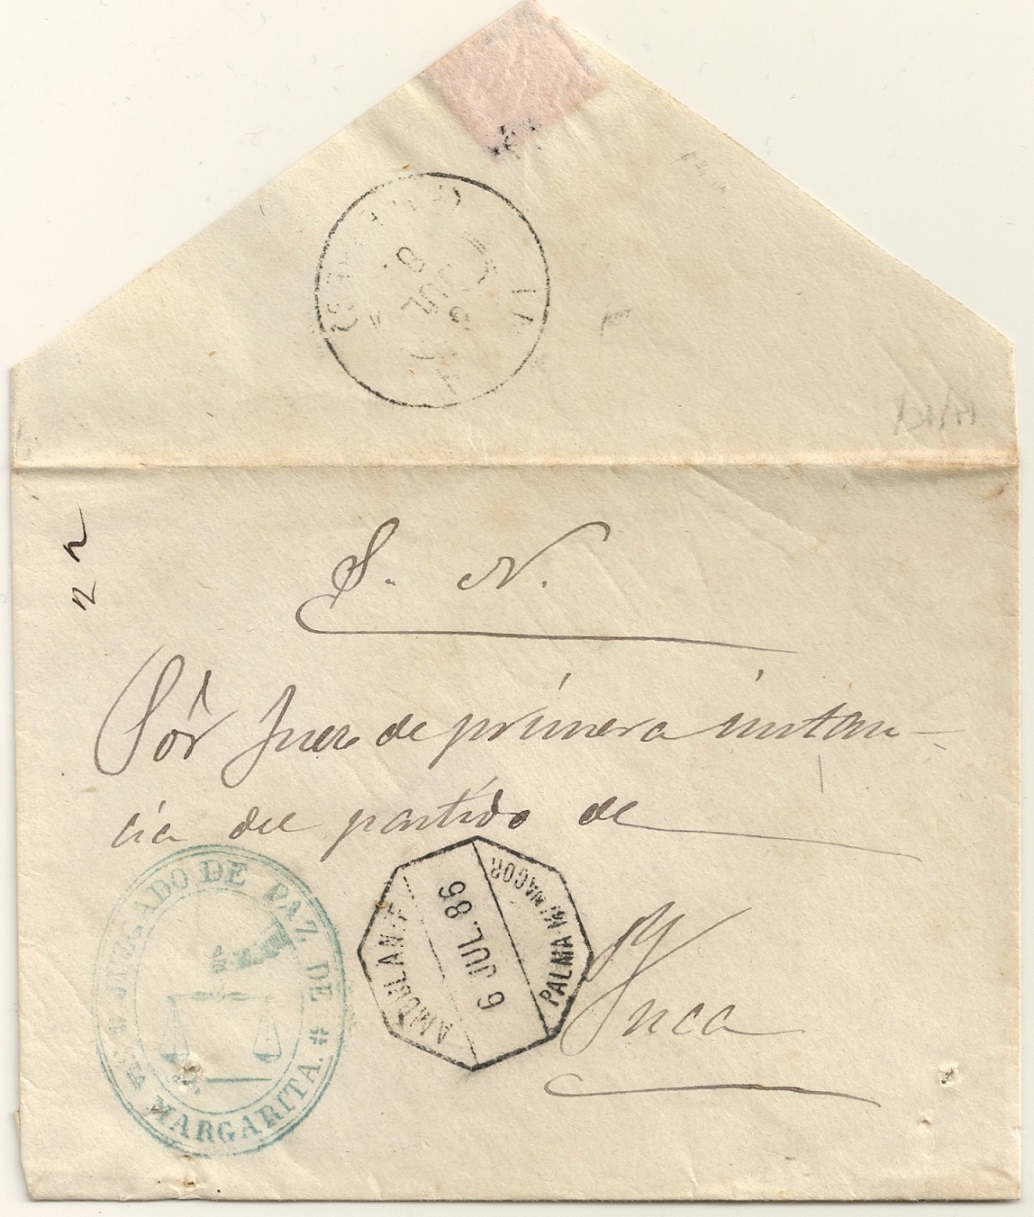 S. N.
Sor Juez de primera instan-
cia del partido de
Ynca
JUZGADO DE PAZ DE
STA MARGARITA.
AMBULANTE
6 JUL. 86
PALMA-MANACOR
JUL